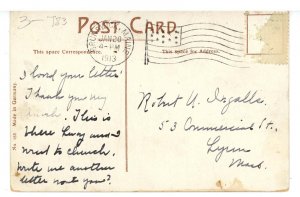 3- T83
POST CARD.
This space Correspondence.
This Space for Address.
JAN 20
4-PM
1913
MAINE
I loved your letter
Thank you very
much. This is
where Lucy and I
went to church.
Write me another
letter wont you?
Robert U. Ingalls.
53 Commercial St.,
Lynn
Mass.
Made in Germany
No.